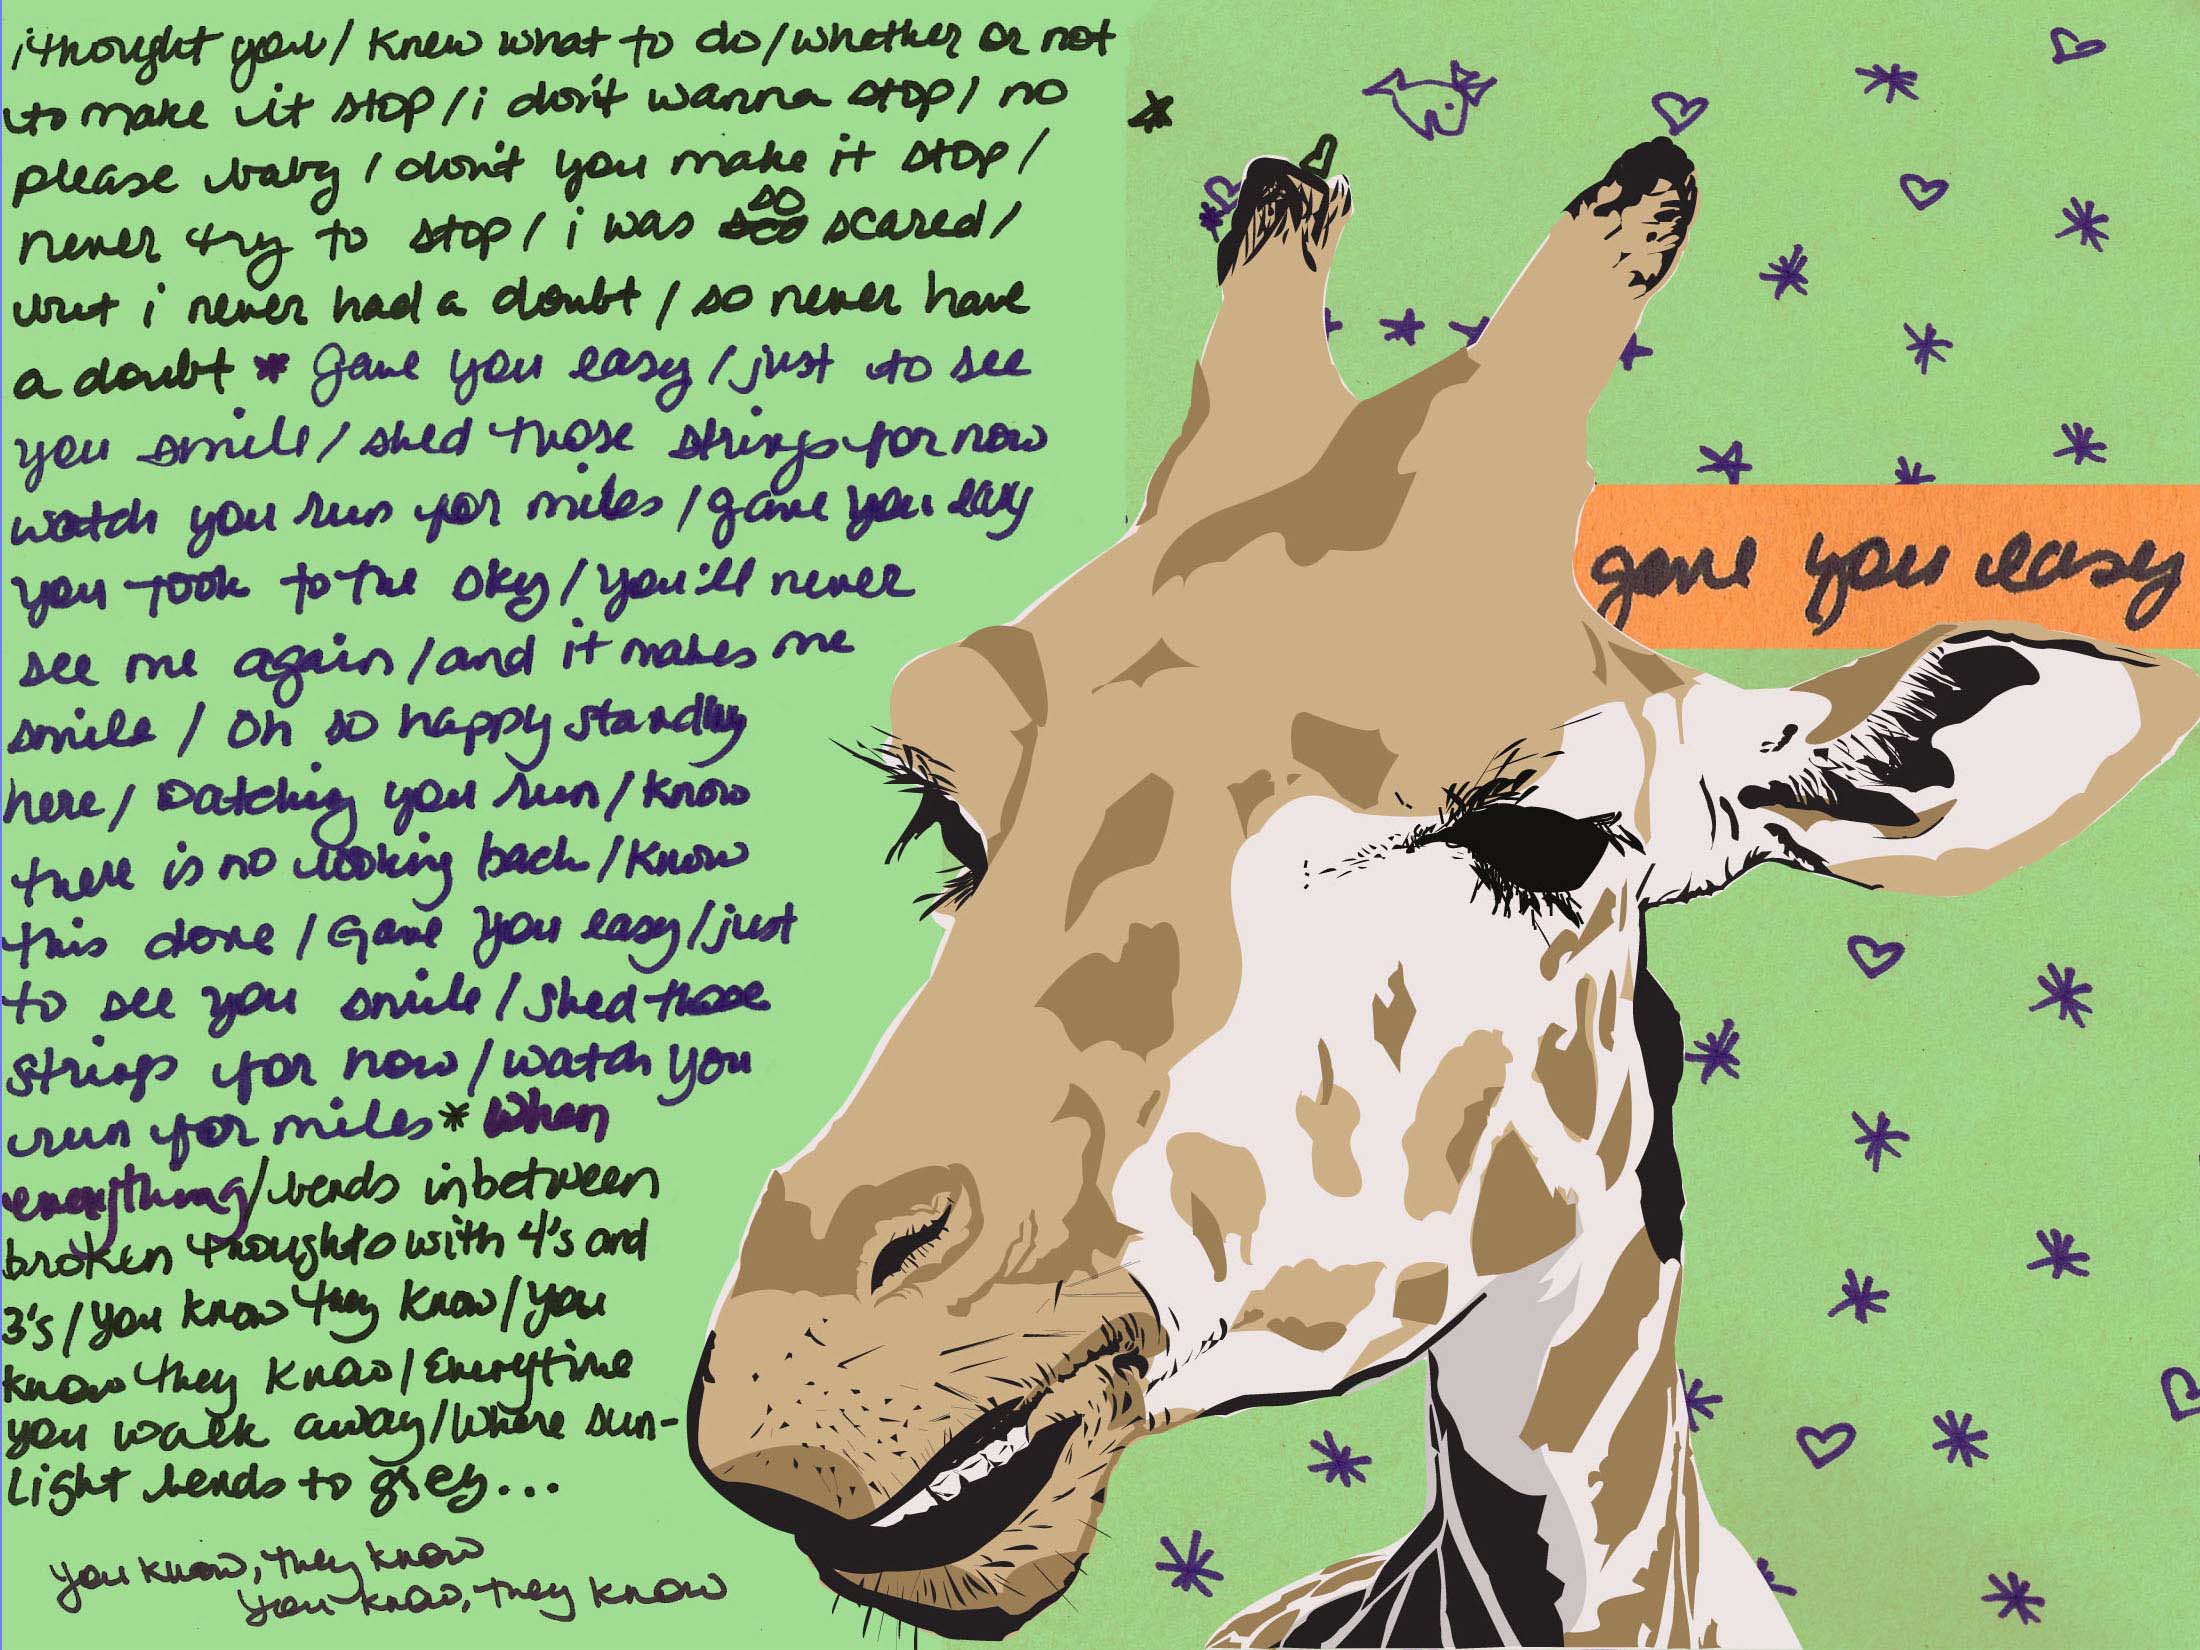 i thought you / knew what to do / whether or not
to make it stop / i don't wanna stop / no
please baby / don't you make it stop /
never try to stop / i was so scared /
but i never had a doubt / so never have
a doubt * gave you easy / just to see
you smile / shed those strings for now
watch you run for miles / gave you easy
you took to the sky / you'll never
see me again / and it makes me
smile / oh so happy standing
here / watching you run / know
there is no looking back / know
this done / Gave you easy / just
to see you smile / shed those
strings for now / watch you
run for miles * When
everything / bends in between
broken thoughts with 4's and
3's / you know they know / you
know they know / Everytime
you walk away / where sun-
light bends to grey...
you know, they know
you know, they know
gave you easy